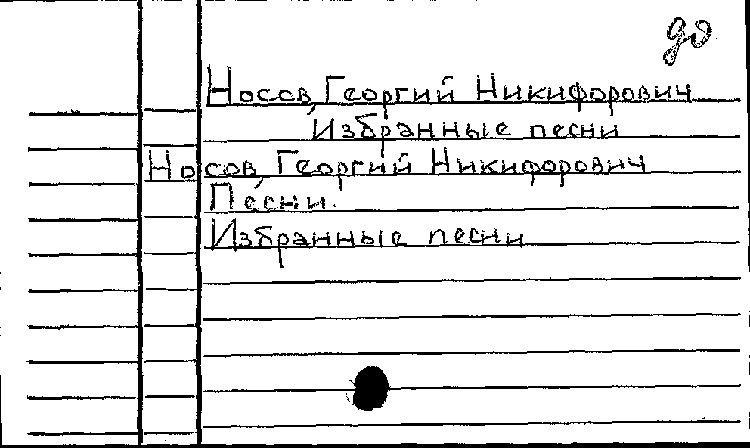 до
Носов, Георгий Никифорович
Избранные песни
Носов, Георгий Никифорович
Песни.
Избранные песни